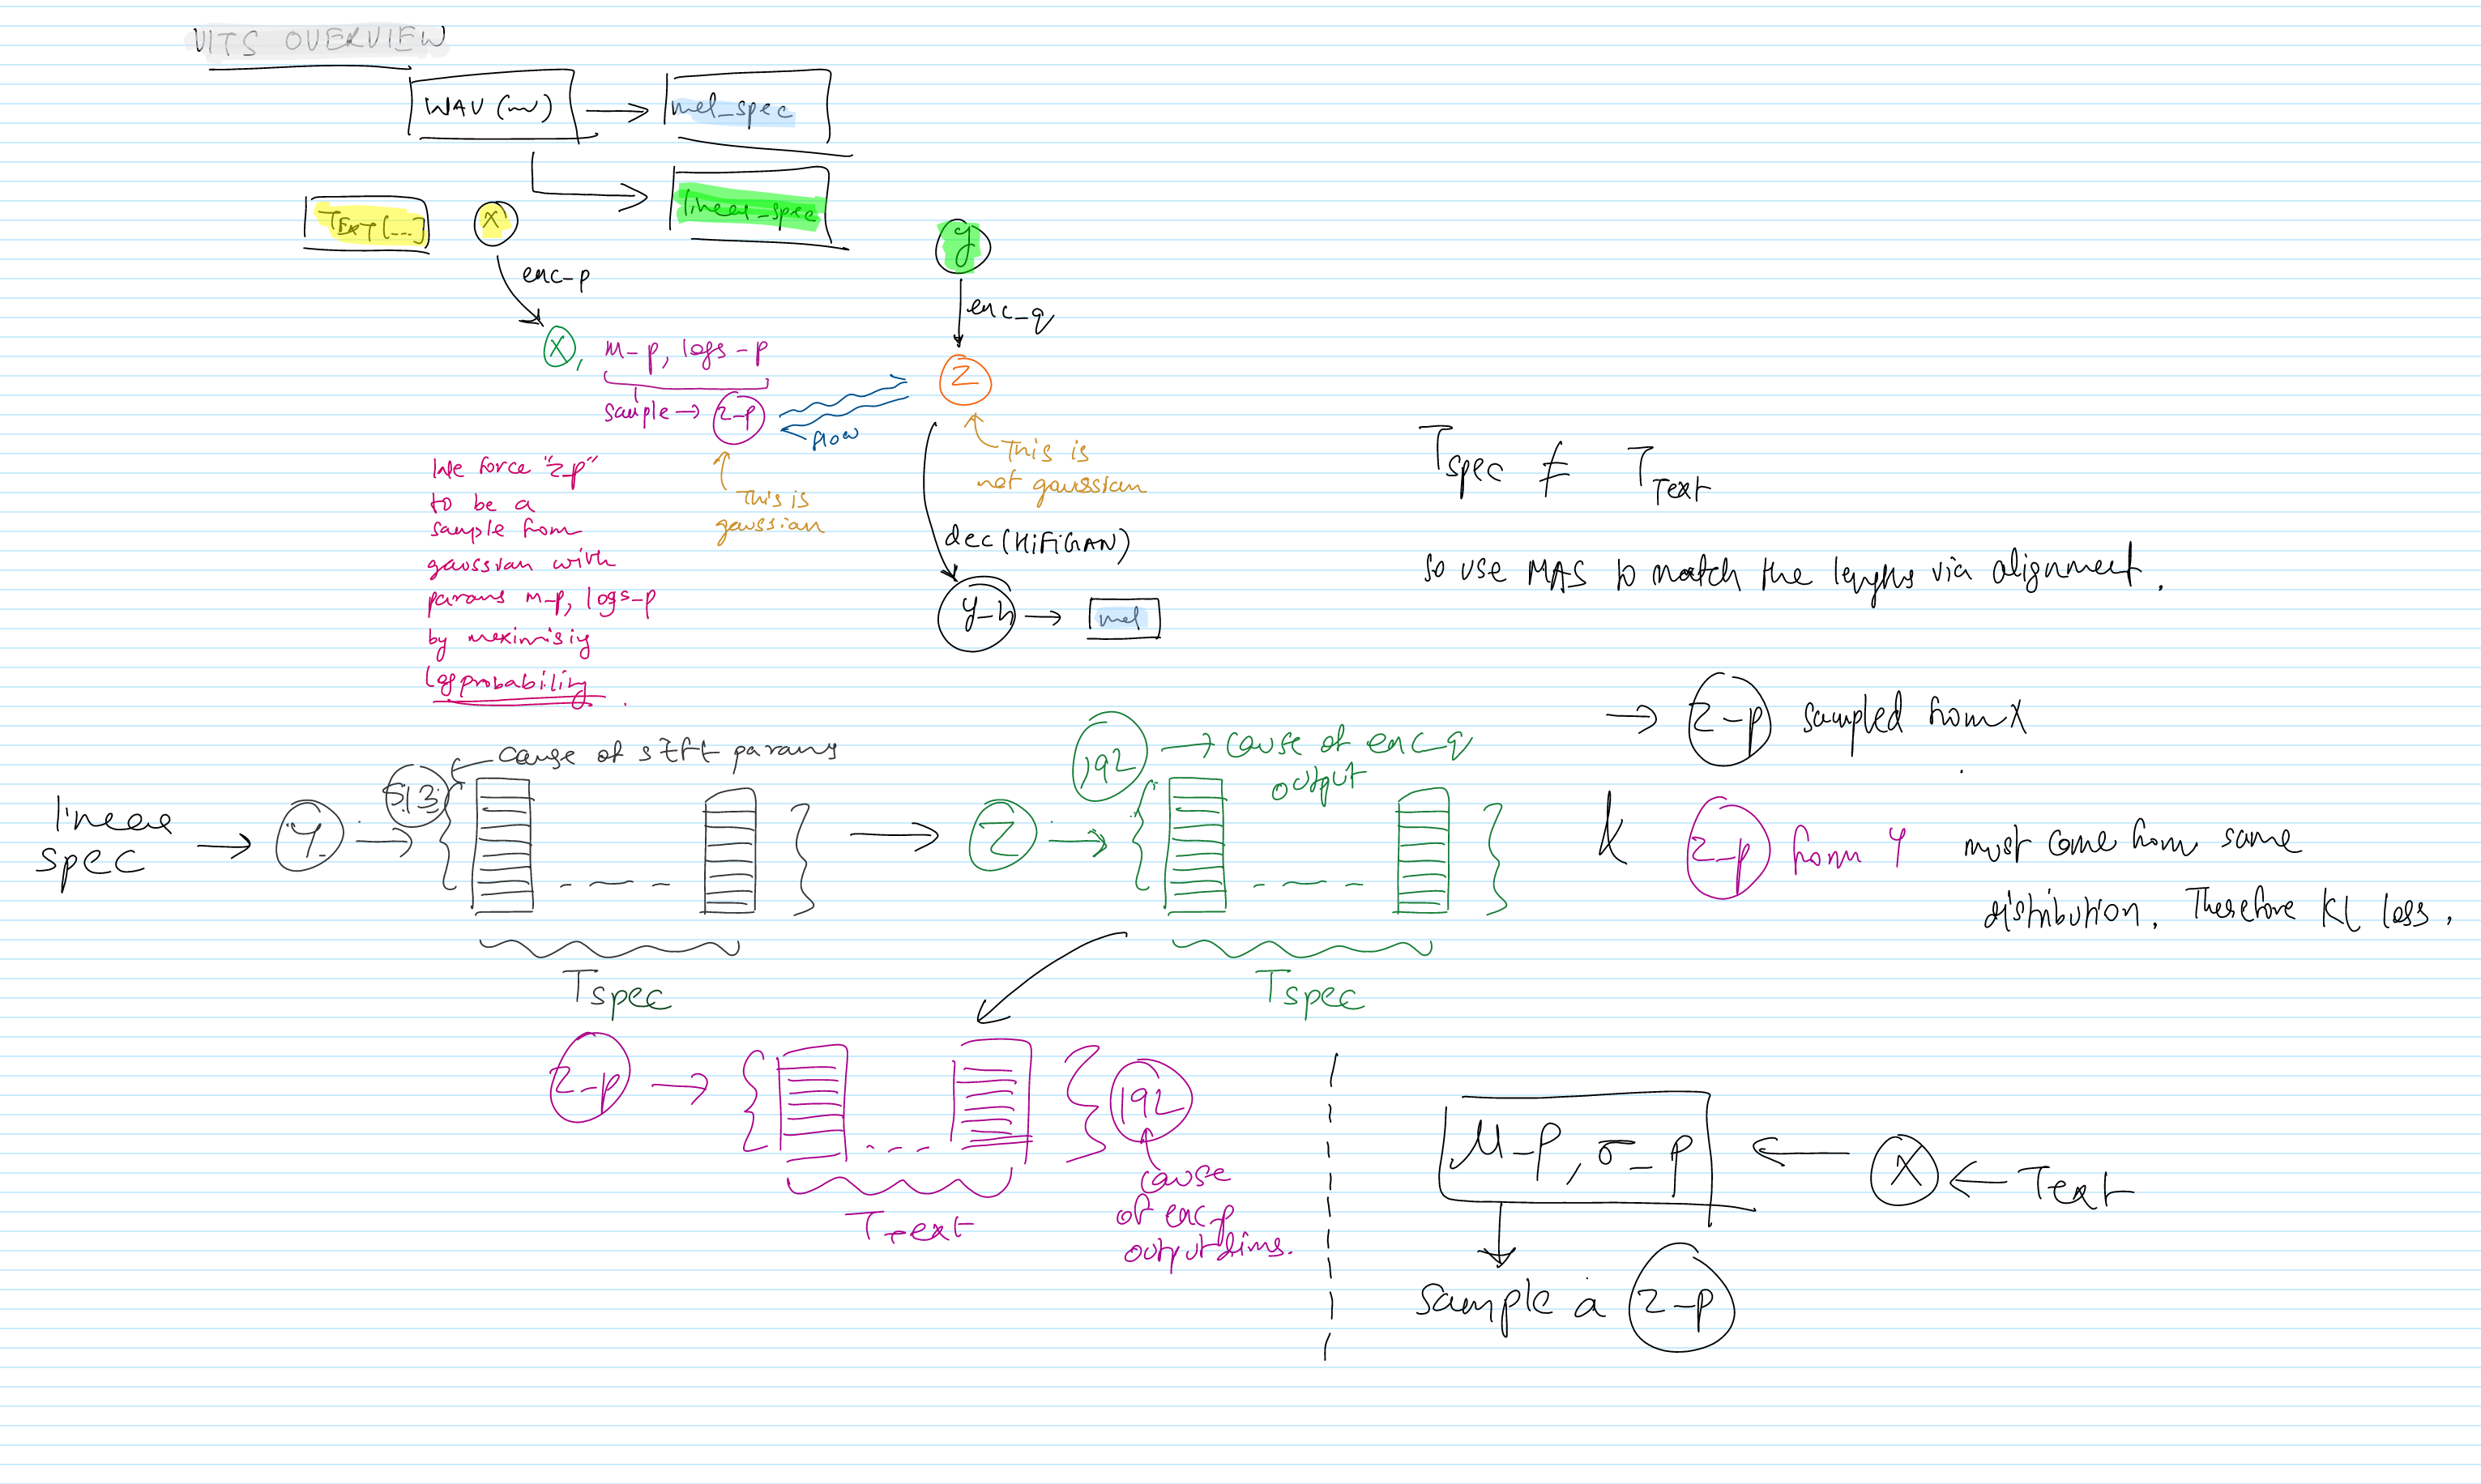 VITS OVERVIEW
WAV (~)
mel_spec
linear_spec
TEXT (...)
X
y
enc_p
enc_q
X, m_p, logs_p
Z
sample → z-p
flow
This is
not gaussian
This is
gaussian
We force "z-p"
to be a
sample from
gaussian with
params m-p, logs-p
by maximising
logprobability.
dec (HiFiGAN)
y-h → mel
Tspec ≠ TText
so use MAS to match the lengths via alignment.
→ z-p sampled from X
& z-p from Y must come from same
distribution. Therefore KL loss.
linear
spec → Y → 513
cause of stft params
Tspec
Z → 192 → cause of enc-q
output
Tspec
z-p → 192
TText
cause
of enc-p
output dims.
μ-p, σ-p ← X ← Text
sample a z-p